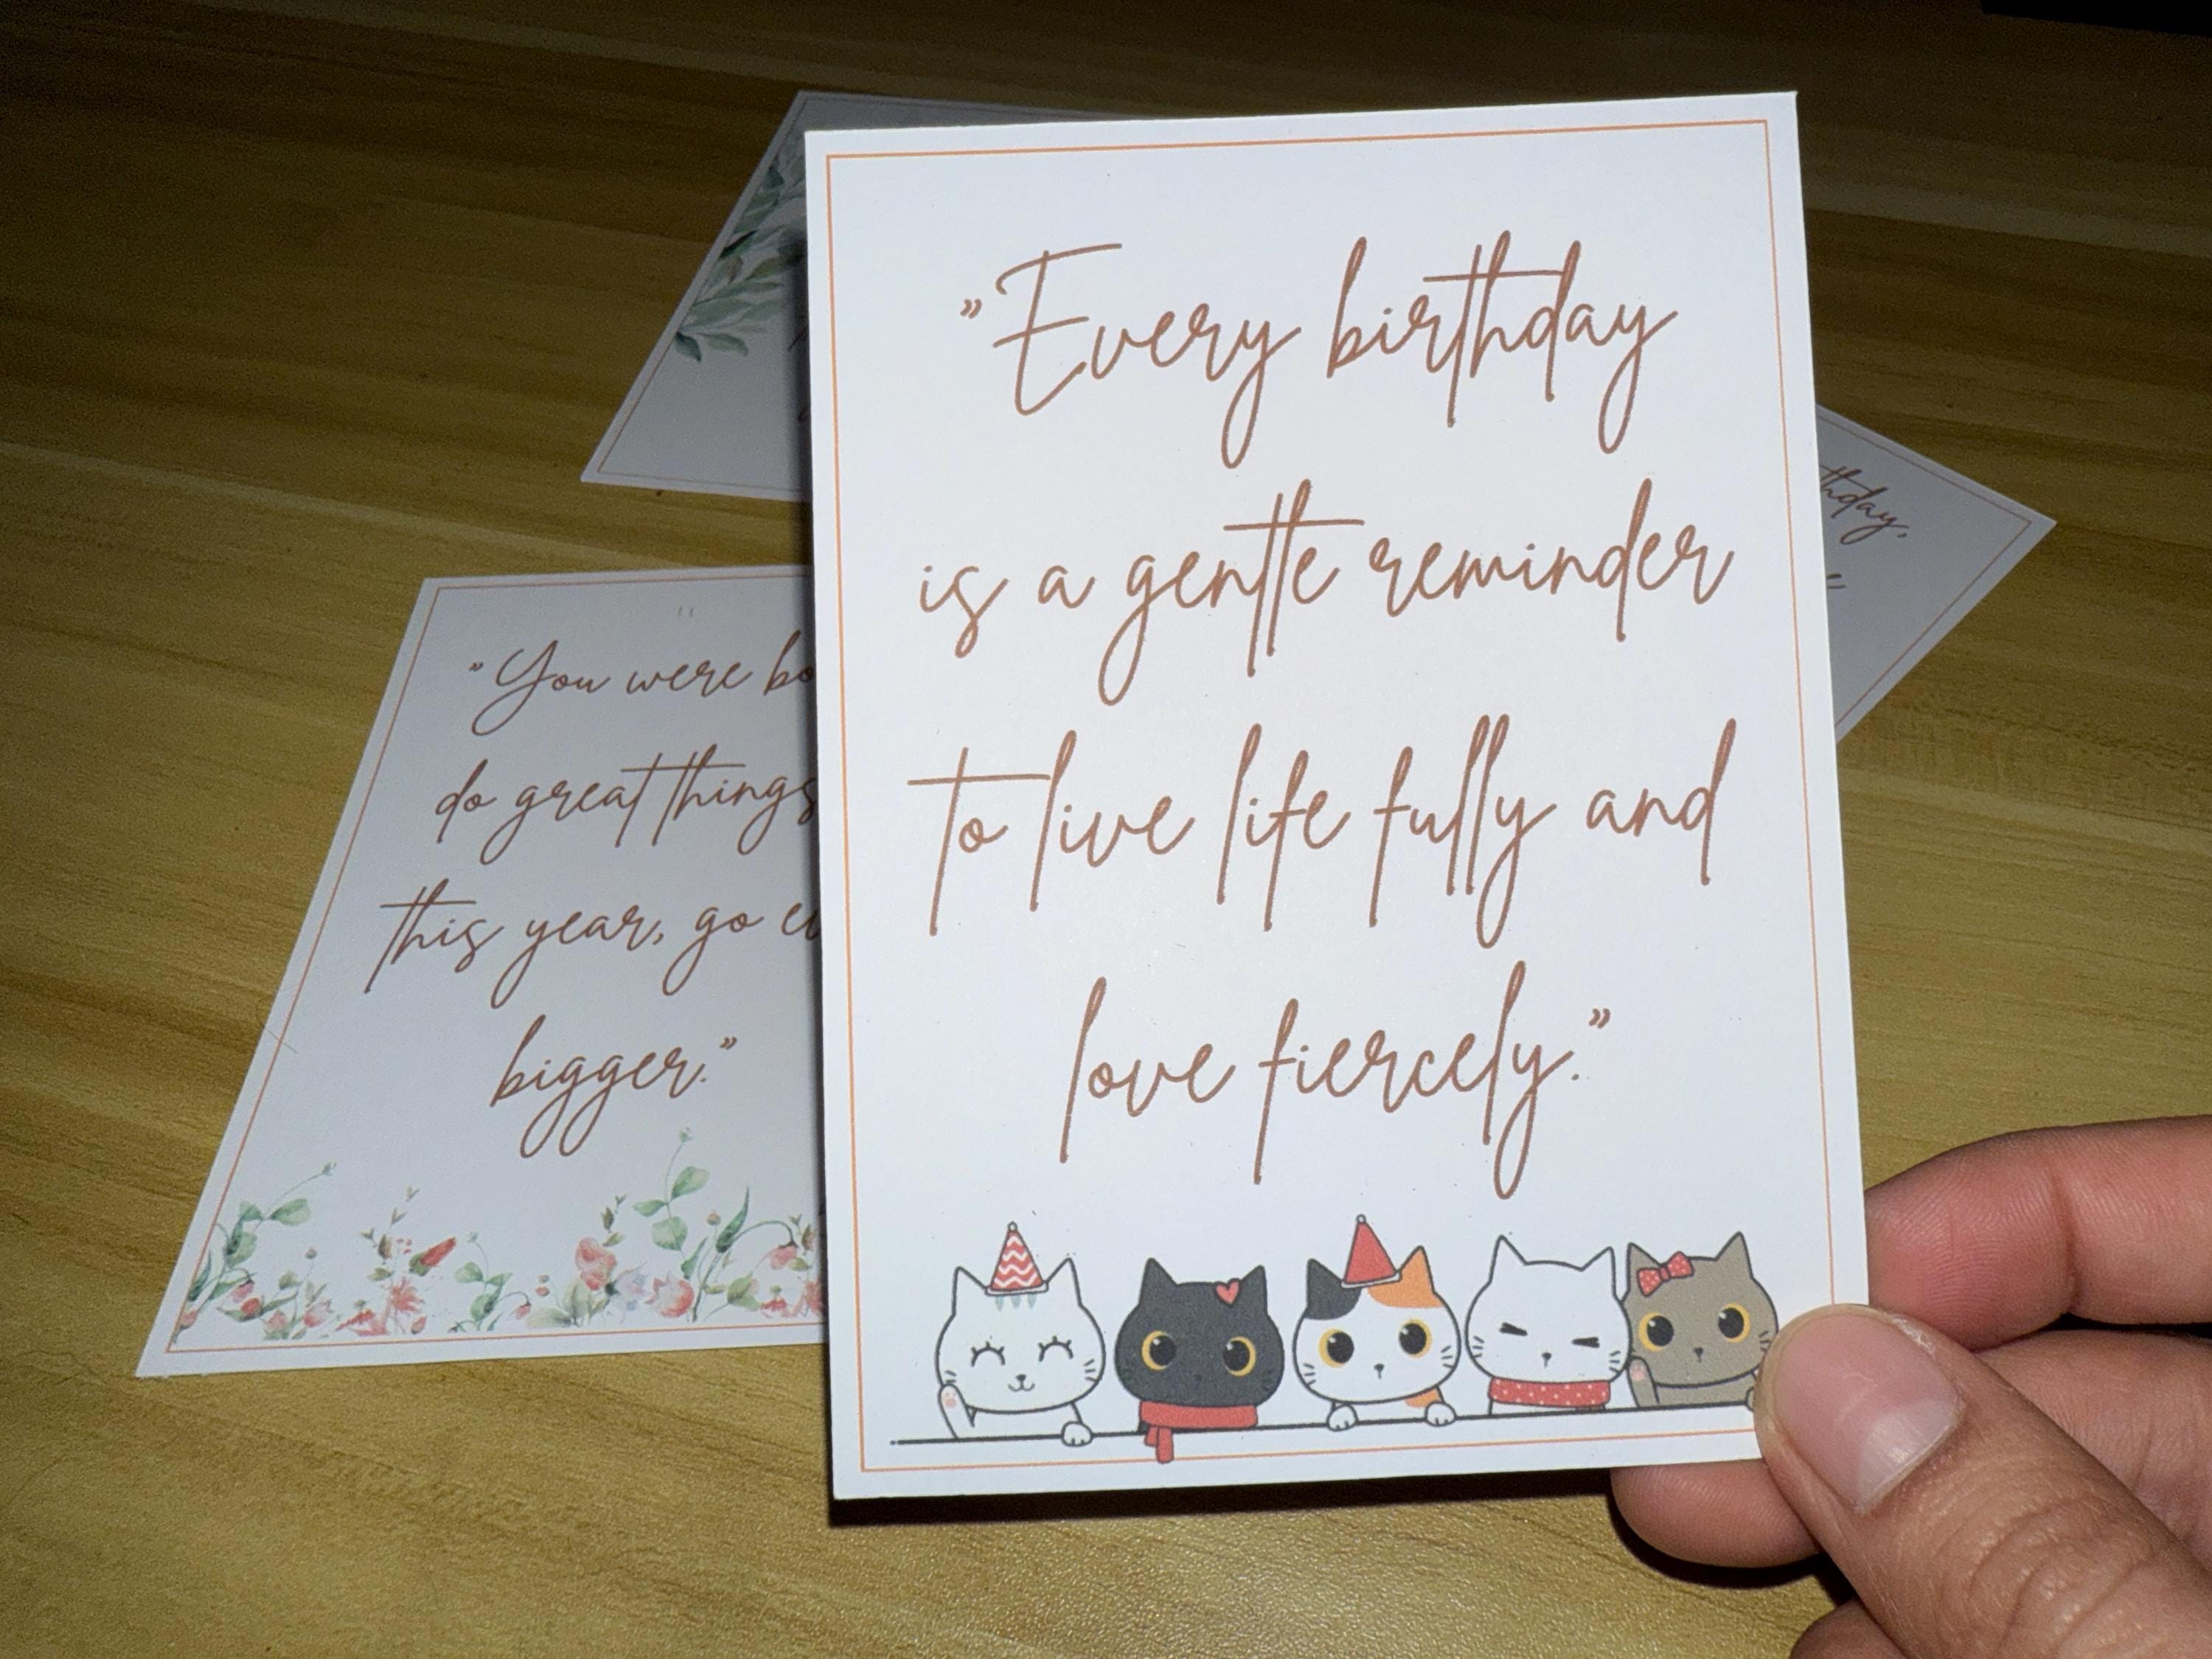 "Every birthday
is a gentle reminder
to live life fully and
love fiercely."
"You were
do great things
this year, go
bigger."